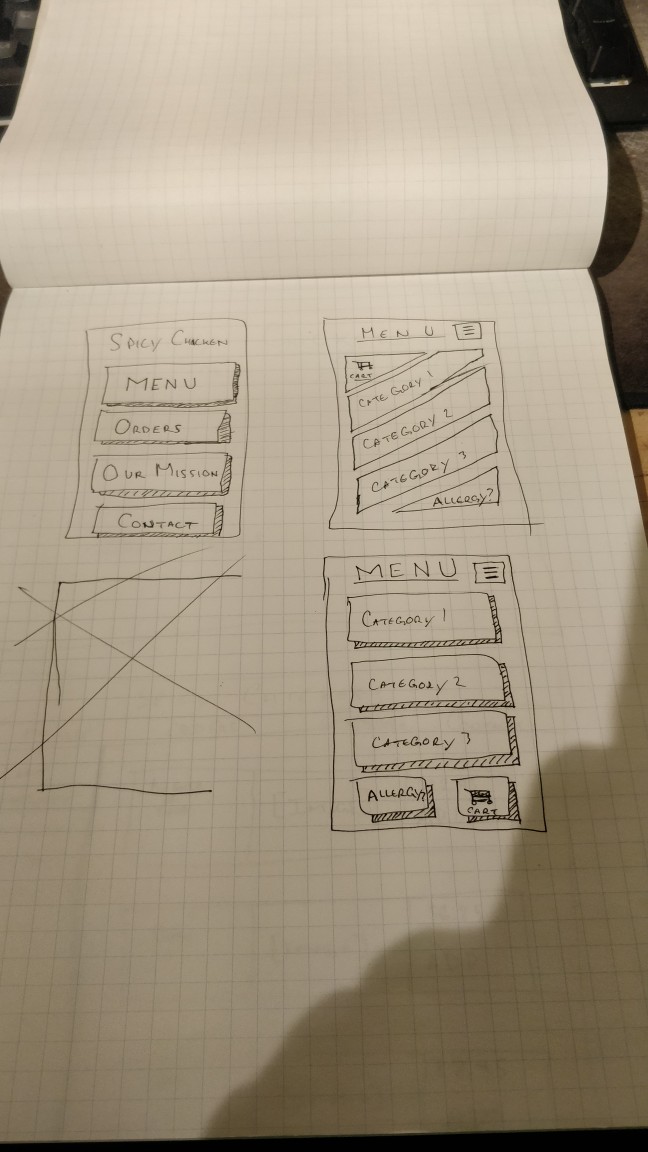 SPICY CHICKEN
MENU
ORDERS
OUR MISSION
CONTACT
MENU
CART
CATEGORY 1
CATEGORY 2
CATEGORY 3
ALLERGY?
MENU
CATEGORY 1
CATEGORY 2
CATEGORY 3
ALLERGY?
CART